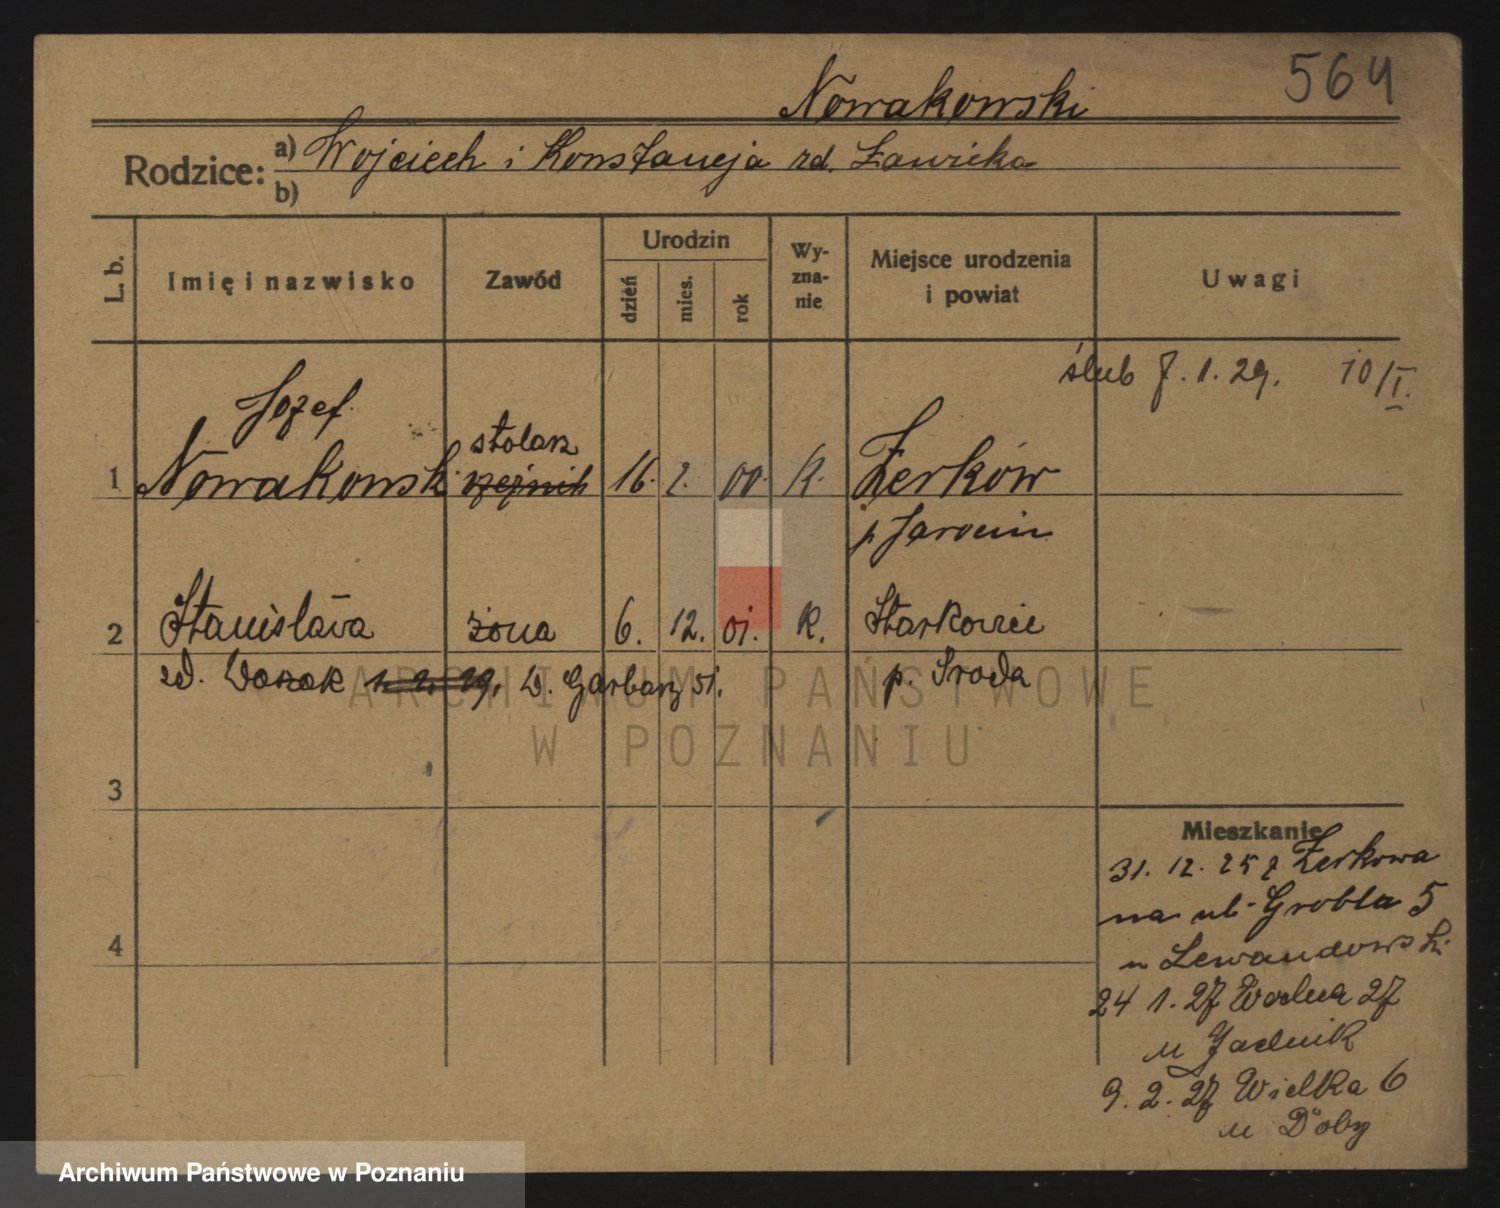 564
Nowakowski
Rodzice: a) Wojciech i Konstancja zd. Ławicka
b)
L. b.
Imię i nazwisko
Zawód
Urodzin
dzień
mies.
rok
Wy-
zna-
nie
Miejsce urodzenia
i powiat
Uwagi
ślub 7. 1. 29. 10/I.
Józef
stolarz
1 Nowakowski rzeźnik 16. 2. 00. K. Żerków
p Jarocin
2 Stanisława żona 6. 12. 01. K. Starkowiec
zd. Wozak 1. 2. 29. W. Garbary 51. p. Środa
3
4
Mieszkanie
31. 12. 25 z Żerkowa
na ul. Grobla 5
u Lewandowski
24 1. 27 Wodna 27
u Jadnik
9. 2. 27 Wielka 6
u Doby
ARCHIWUM PAŃSTWOWE
W POZNANIU
Archiwum Państwowe w Poznaniu